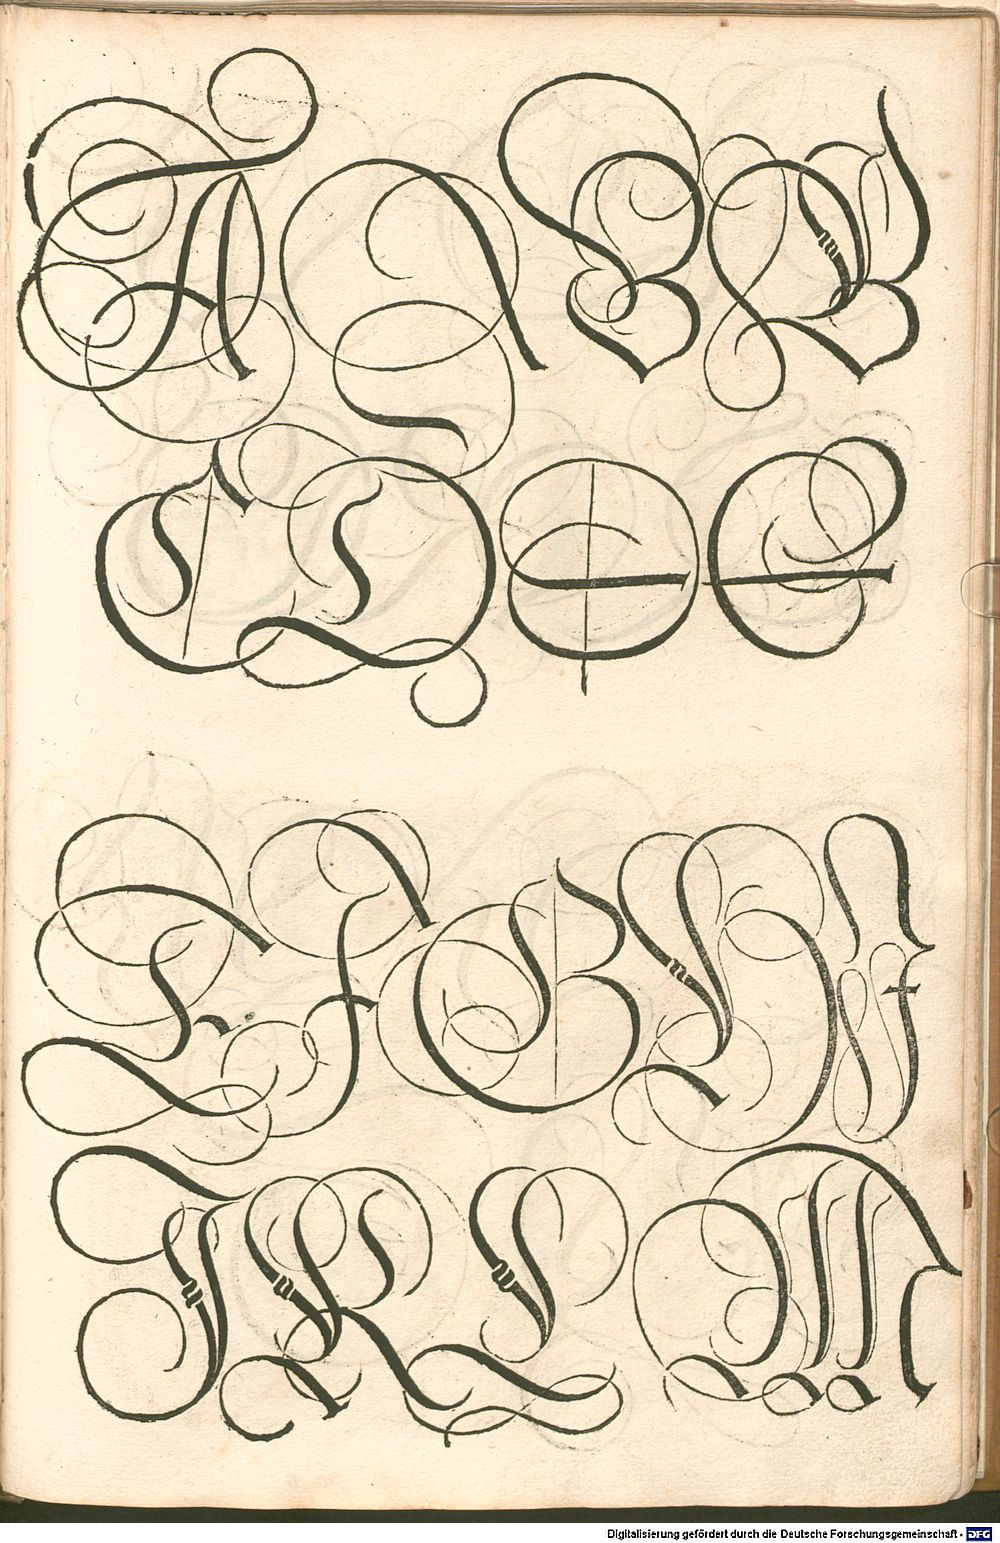 A A B B
C D E E
E F G H I
J K L M
Digitalisierung gefördert durch die Deutsche Forschungsgemeinschaft - DFG